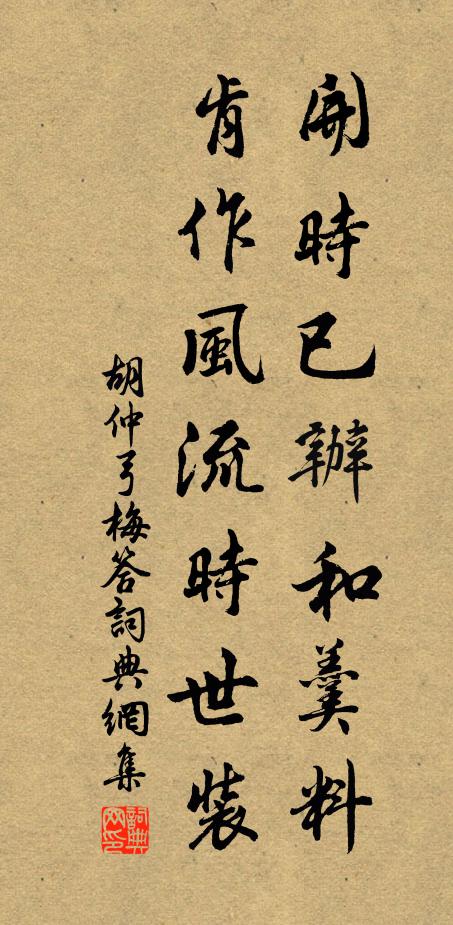 開時已辦和羹料
肯作風流時世裝
胡仲弓梅答詞典網集
詞典網印